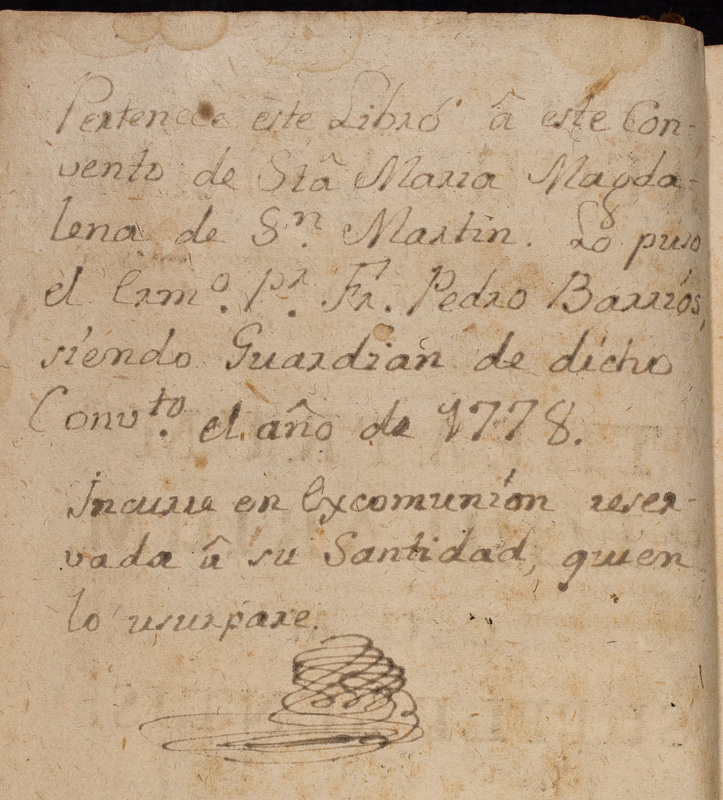 Pertenece este Libro â este Con-
vento de Stâ Maria Magda-
lena de Sn. Martin. Lo puso
el Ermo. Pr. Fr. Pedro Barriós,
siendo Guardian de dicho
Convto. el año de 1778.
Incurre en Excomunión reser-
vada â su Santidad, quien
lo usurpare.